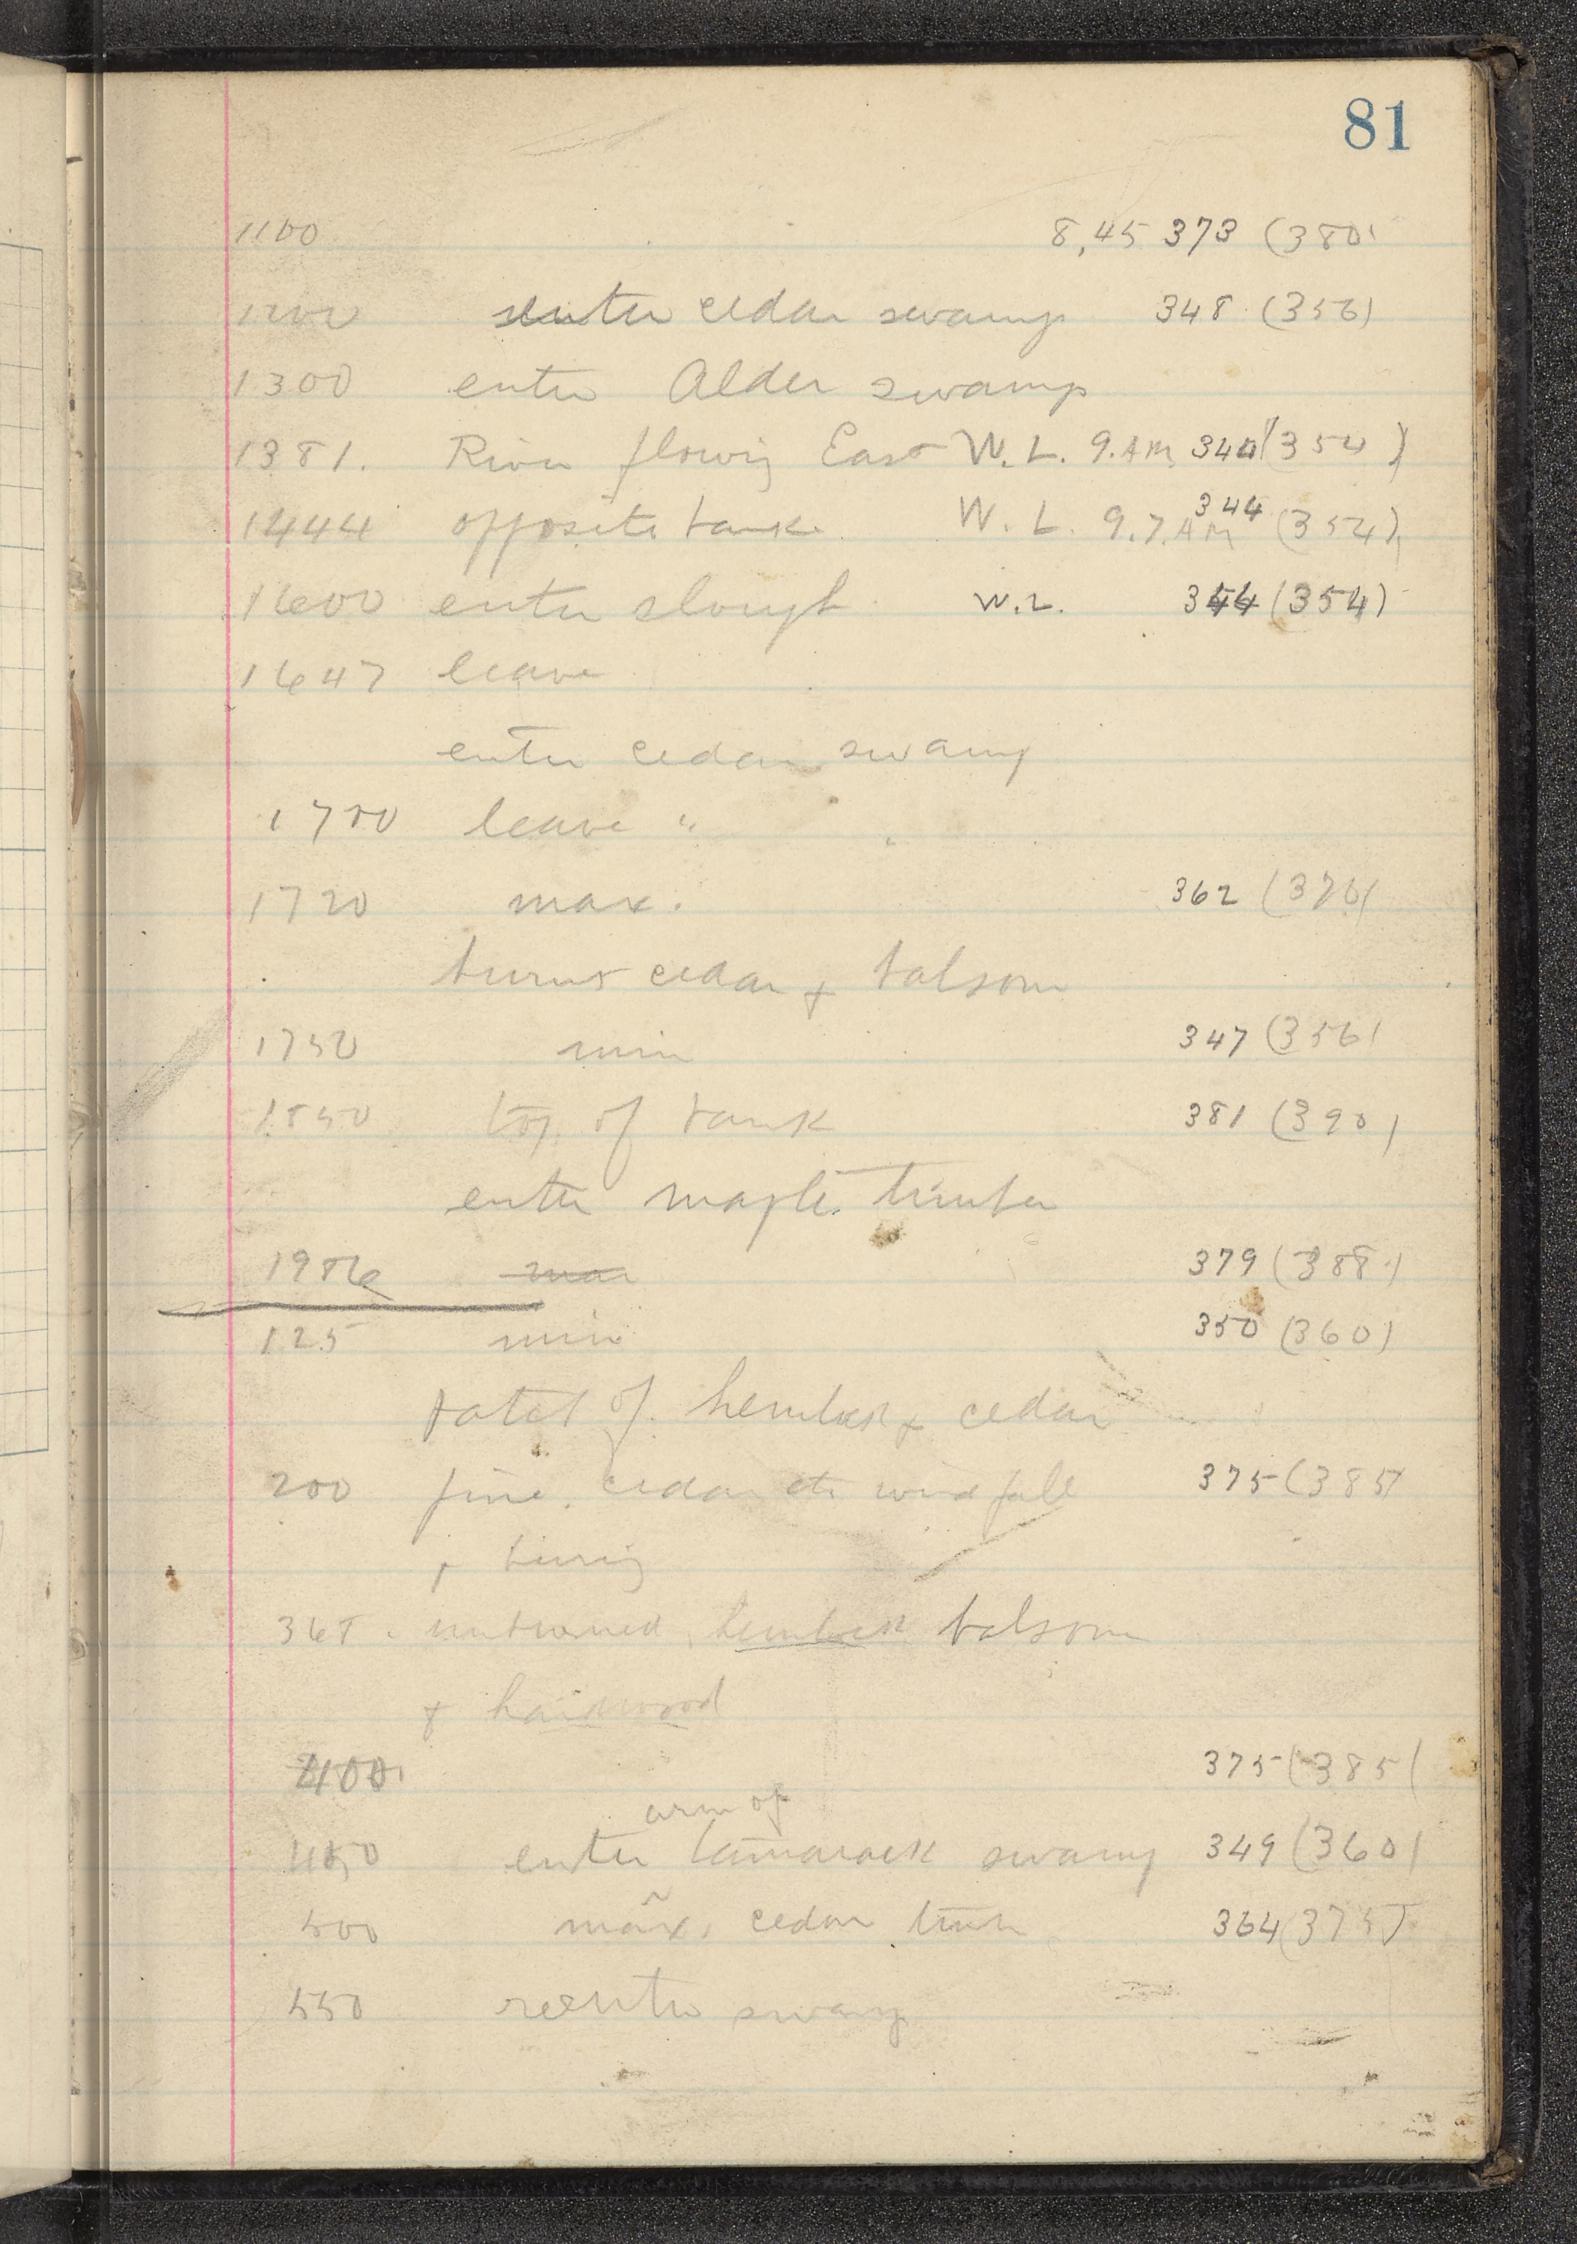 81
1100 8,45 373 (380)
1200 enter cedar swamp 348 (356)
1300 enter Alder swamp
1381. River flowing East W. L. 9. AM 344 (354)
1444 opposite bank W. L. 9.7. AM 344 (354)
1600 enter slough W. L. 344 (354)
1647 leave
enter cedar swamp
1700 leave "
1720 max. 362 (370)
burnt cedar & balsam
1750 min 347 (356)
1850 top of bank 381 (390)
enter maple timber
1986 max 379 (388)
125 min 350 (360)
patch of hemlock & cedar
200 pine, cedar etc windfall 375 (385)
& burnig
368. unburned, hemlock balsam
& hardwood
400. 375 (385)
arm of
450 enter tamarack swamp 349 (360)
500 max, cedar 364 (375)
550 reenter swamp